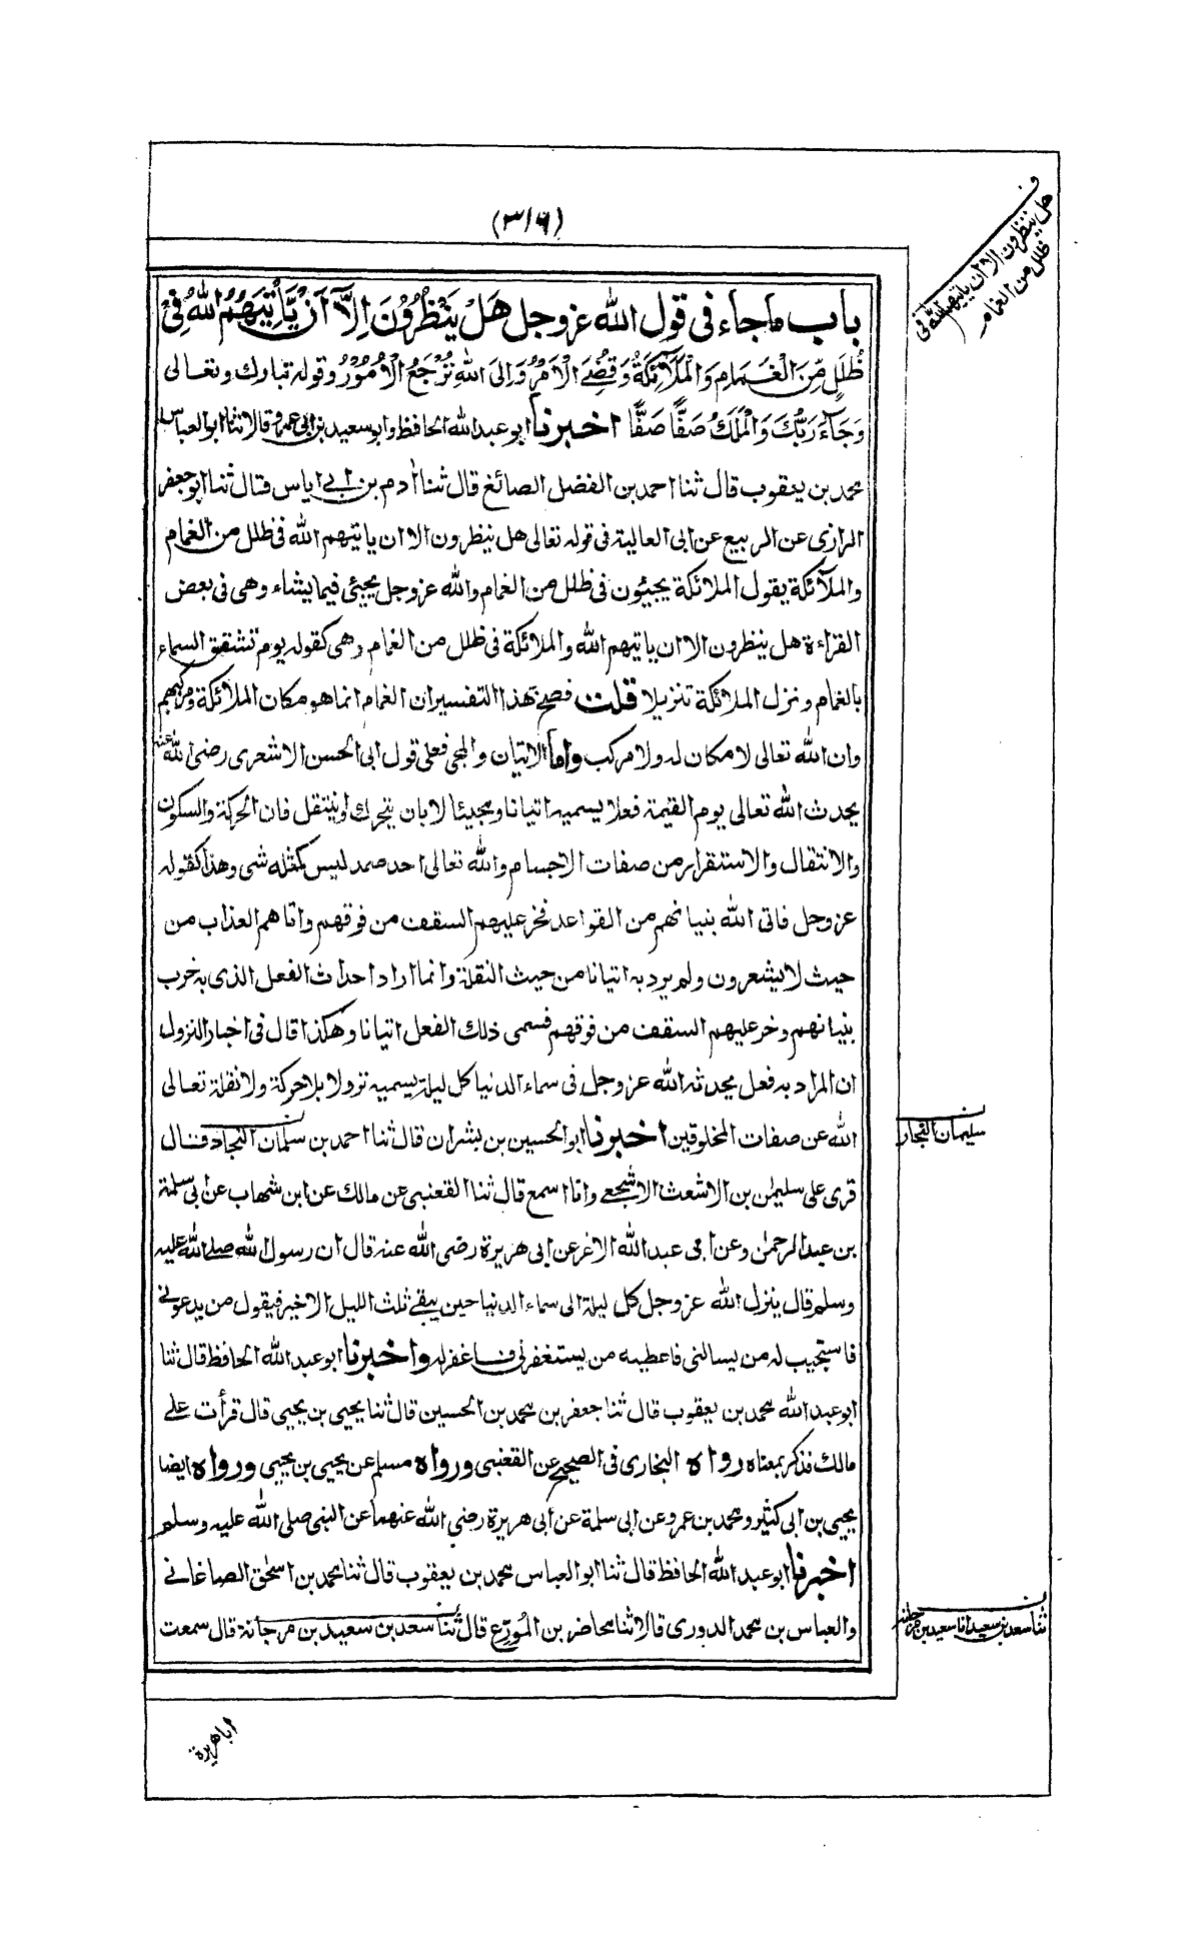 (٣١٦)
ف
هل ينظرون الا ان ياتيهم الله فى
ظلل من الغمام
باب ماجاء فى قول الله عزوجل هَلْ يَنْظُرُوْنَ اِلَّآ اَنْ يَّاْتِيَهُمُ اللهُ فِيْ
ظُلَلٍ مِّنَ الْغَمَامِ وَالْمَلَآئِكَةُ وَقُضِيَ الْاَمْرُ وَاِلَى اللهِ تُرْجَعُ الْاُمُوْرُ وقوله تبارك وتعالى
وَجَآءَ رَبُّكَ وَالْمَلَكُ صَفًّا صَفًّا اخبرنا ابو عبد الله الحافظ وابو سعيد بن ابى عمرو قالا ثنا ابو العباس
محمد بن يعقوب قال ثنا احمد بن الفضل الصائغ قال ثنا اٰدم بن ابي اياس قال ثنا ابو جعفر
الرازى عن الربيع عن ابى العالية فى قوله تعالى هل ينظرون الا ان ياتيهم الله فى ظلل من الغمام
والملآئكة يقول الملائكة يجيئون فى ظلل من الغمام والله عزوجل يجيئ فيما يشاء وهى فى بعض
القراءة هل ينظرون الا ان ياتيهم الله والملائكة فى ظلل من الغمام وهى كقوله يوم تشقق السماء
بالغمام ونزل الملائكة تنزيلا قلت فصح بهذا التفسير ان الغمام انما هو مكان الملائكة ومركبهم
وان الله تعالى لا مكان له ولا مركب واما الاتيان والمجى فعلى قول ابى الحسن الاشعرى رضى الله عنه
يحدث الله تعالى يوم القيمة فعلا يسميه اتيانا ومجيئا لا بان يتحرك او ينتقل فان الحركة والسكون
والانتقال والاستقرار من صفات الاجسام والله تعالى احد صمد ليس كمثله شى وهذا كقوله
عزوجل فاتى الله بنيانهم من القواعد فخر عليهم السقف من فوقهم واتاهم العذاب من
حيث لا يشعرون ولم يرد به اتيانا من حيث النقلة وانما اراد احداث الفعل الذى به خرب
بنيانهم وخر عليهم السقف من فوقهم فسمى ذلك الفعل اتيانا وهكذا قال فى اخبار النزول
ان المراد به فعل يحدثه الله عزوجل فى سماء الدنيا كل ليلة يسميه نزولا بلا حركة ولا نقلة تعالى
الله عن صفات المخلوقين اخبرنا ابو الحسين بن بشران قال ثنا احمد بن سلمان النجاد قال
ن
سليمان النجار
قرى على سليمٰن بن الاشعث الاشجعي وانا اسمع قال ثنا القعنبى عن مالك عن ابن شهاب عن ابى سلمة
بن عبد الرحمٰن وعن ابى عبد الله الاغر عن ابى هريرة رضى الله عنه قال ان رسول الله صلى الله عليه
وسلم قال ينزل الله عزوجل كل ليلة الى سماء الدنيا حين يبقى ثلث الليل الاخير فيقول من يدعونى
فاستجيب له من يسالنى فاعطيه من يستغفرنى فاغفر له واخبرنا ابو عبد الله الحافظ قال ثنا
ابو عبد الله محمد بن يعقوب قال ثنا جعفر بن محمد بن الحسين قال ثنا يحيى بن يحيى قال قرأت على
مالك فذكر بمعناه رواه البخارى فى الصحيح عن القعنبى ورواه مسلم عن يحيى بن يحيى ورواه ايضا
يحيى بن ابى كثير ومحمد بن عمرو عن ابى سلمة عن ابى هريرة رضي الله عنهما عن النبى صلى الله عليه وسلم
اخبرنا ابو عبد الله الحافظ قال ثنا ابو العباس محمد بن يعقوب قال ثنا محمد بن اسحٰق الصاغانى
والعباس بن محمد الدورى قالا ثنا محاضر بن المُورّع قال ثنا سعد بن سعيد بن مرجانة قال سمعت
ن
ثنا سعد بن سعيد انا سعيد بن مرجانة
ابا هريرة